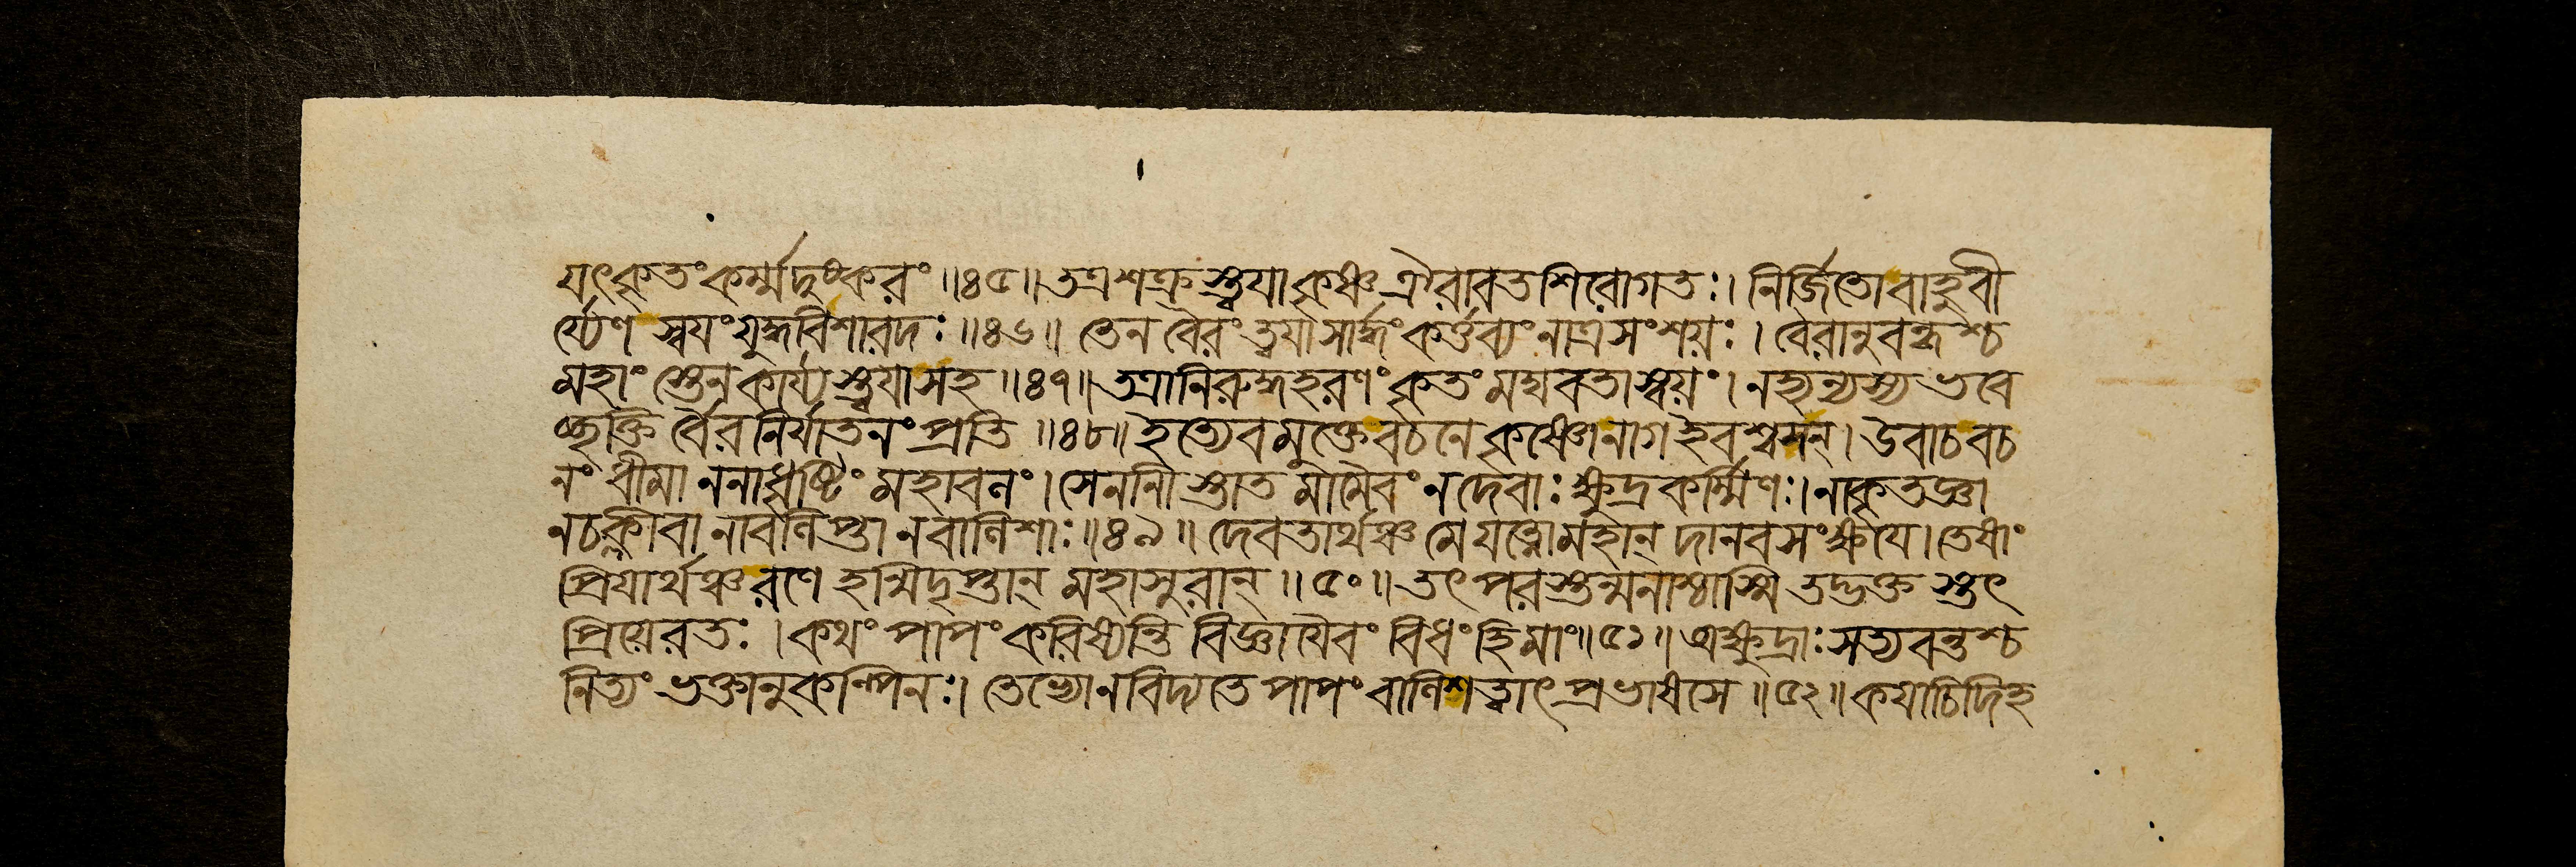 যৎকৃতংকর্ম্মদুষ্করং॥৪৫॥তত্রশক্রস্ত্বয়াকৃষ্ণঐরাবতশিরোগতঃ। নির্জিতোবাহুবী
র্য্যেণ স্বয়ংযুদ্ধবিশারদঃ॥৪৬॥ তেন বৈরং ত্বয়াসার্দ্ধং কর্ত্তব্যং নাত্রসংশয়ঃ। বৈরানুবন্ধশ্চ
মহাংস্তেনকার্য্যস্ত্বয়াসহ॥৪৭॥তত্রানিরুদ্ধহরণং কৃতং মঘবতাস্বয়ং। নহ্যন্যস্য ভবে
চ্ছক্তি র্বৈরনির্যাতনং প্রতি॥৪৮॥ইত্যেবমুক্তেবচনে কৃষ্ণোনাগইবশ্বসন্। উবাচবচ
নং ধীমাননাধৃষ্টিং মহাবলং। সেনানীস্তাত মামৈবং নদেবাঃ ক্ষুদ্রকর্ম্মিণঃ। নাকৃতজ্ঞা
নচক্লীবা নাবলিপ্তা নবালিশাঃ॥৪৯॥ দেবতার্থঞ্চ মেযত্নোমহান্ দানবসংক্ষয়ে। তেষাং
প্রিয়ার্থঞ্চরণে হন্মিদৃপ্তান্ মহাসুরান্॥৫০॥ তৎপরস্তন্মনাশ্চাস্মি তদ্ভক্তস্তৎ
প্রিয়েরতঃ। কথং পাপং করিষ্যন্তি বিজ্ঞায়ৈবং বিধংহিমাং॥৫১॥ অক্ষুদ্রাঃ সত্যবন্তশ্চ
নিত্যং ভক্তানুকম্পিনঃ। তেভ্যোনবিদ্যতে পাপং বালিশত্বাৎ প্রভাষসে॥৫২॥কয়াচিদিহ